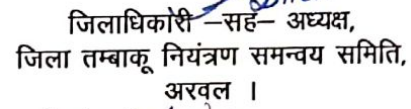 जिलाधिकारी –सह– अध्यक्ष,
जिला तम्बाकू नियंत्रण समन्वय समिति,
अरवल ।